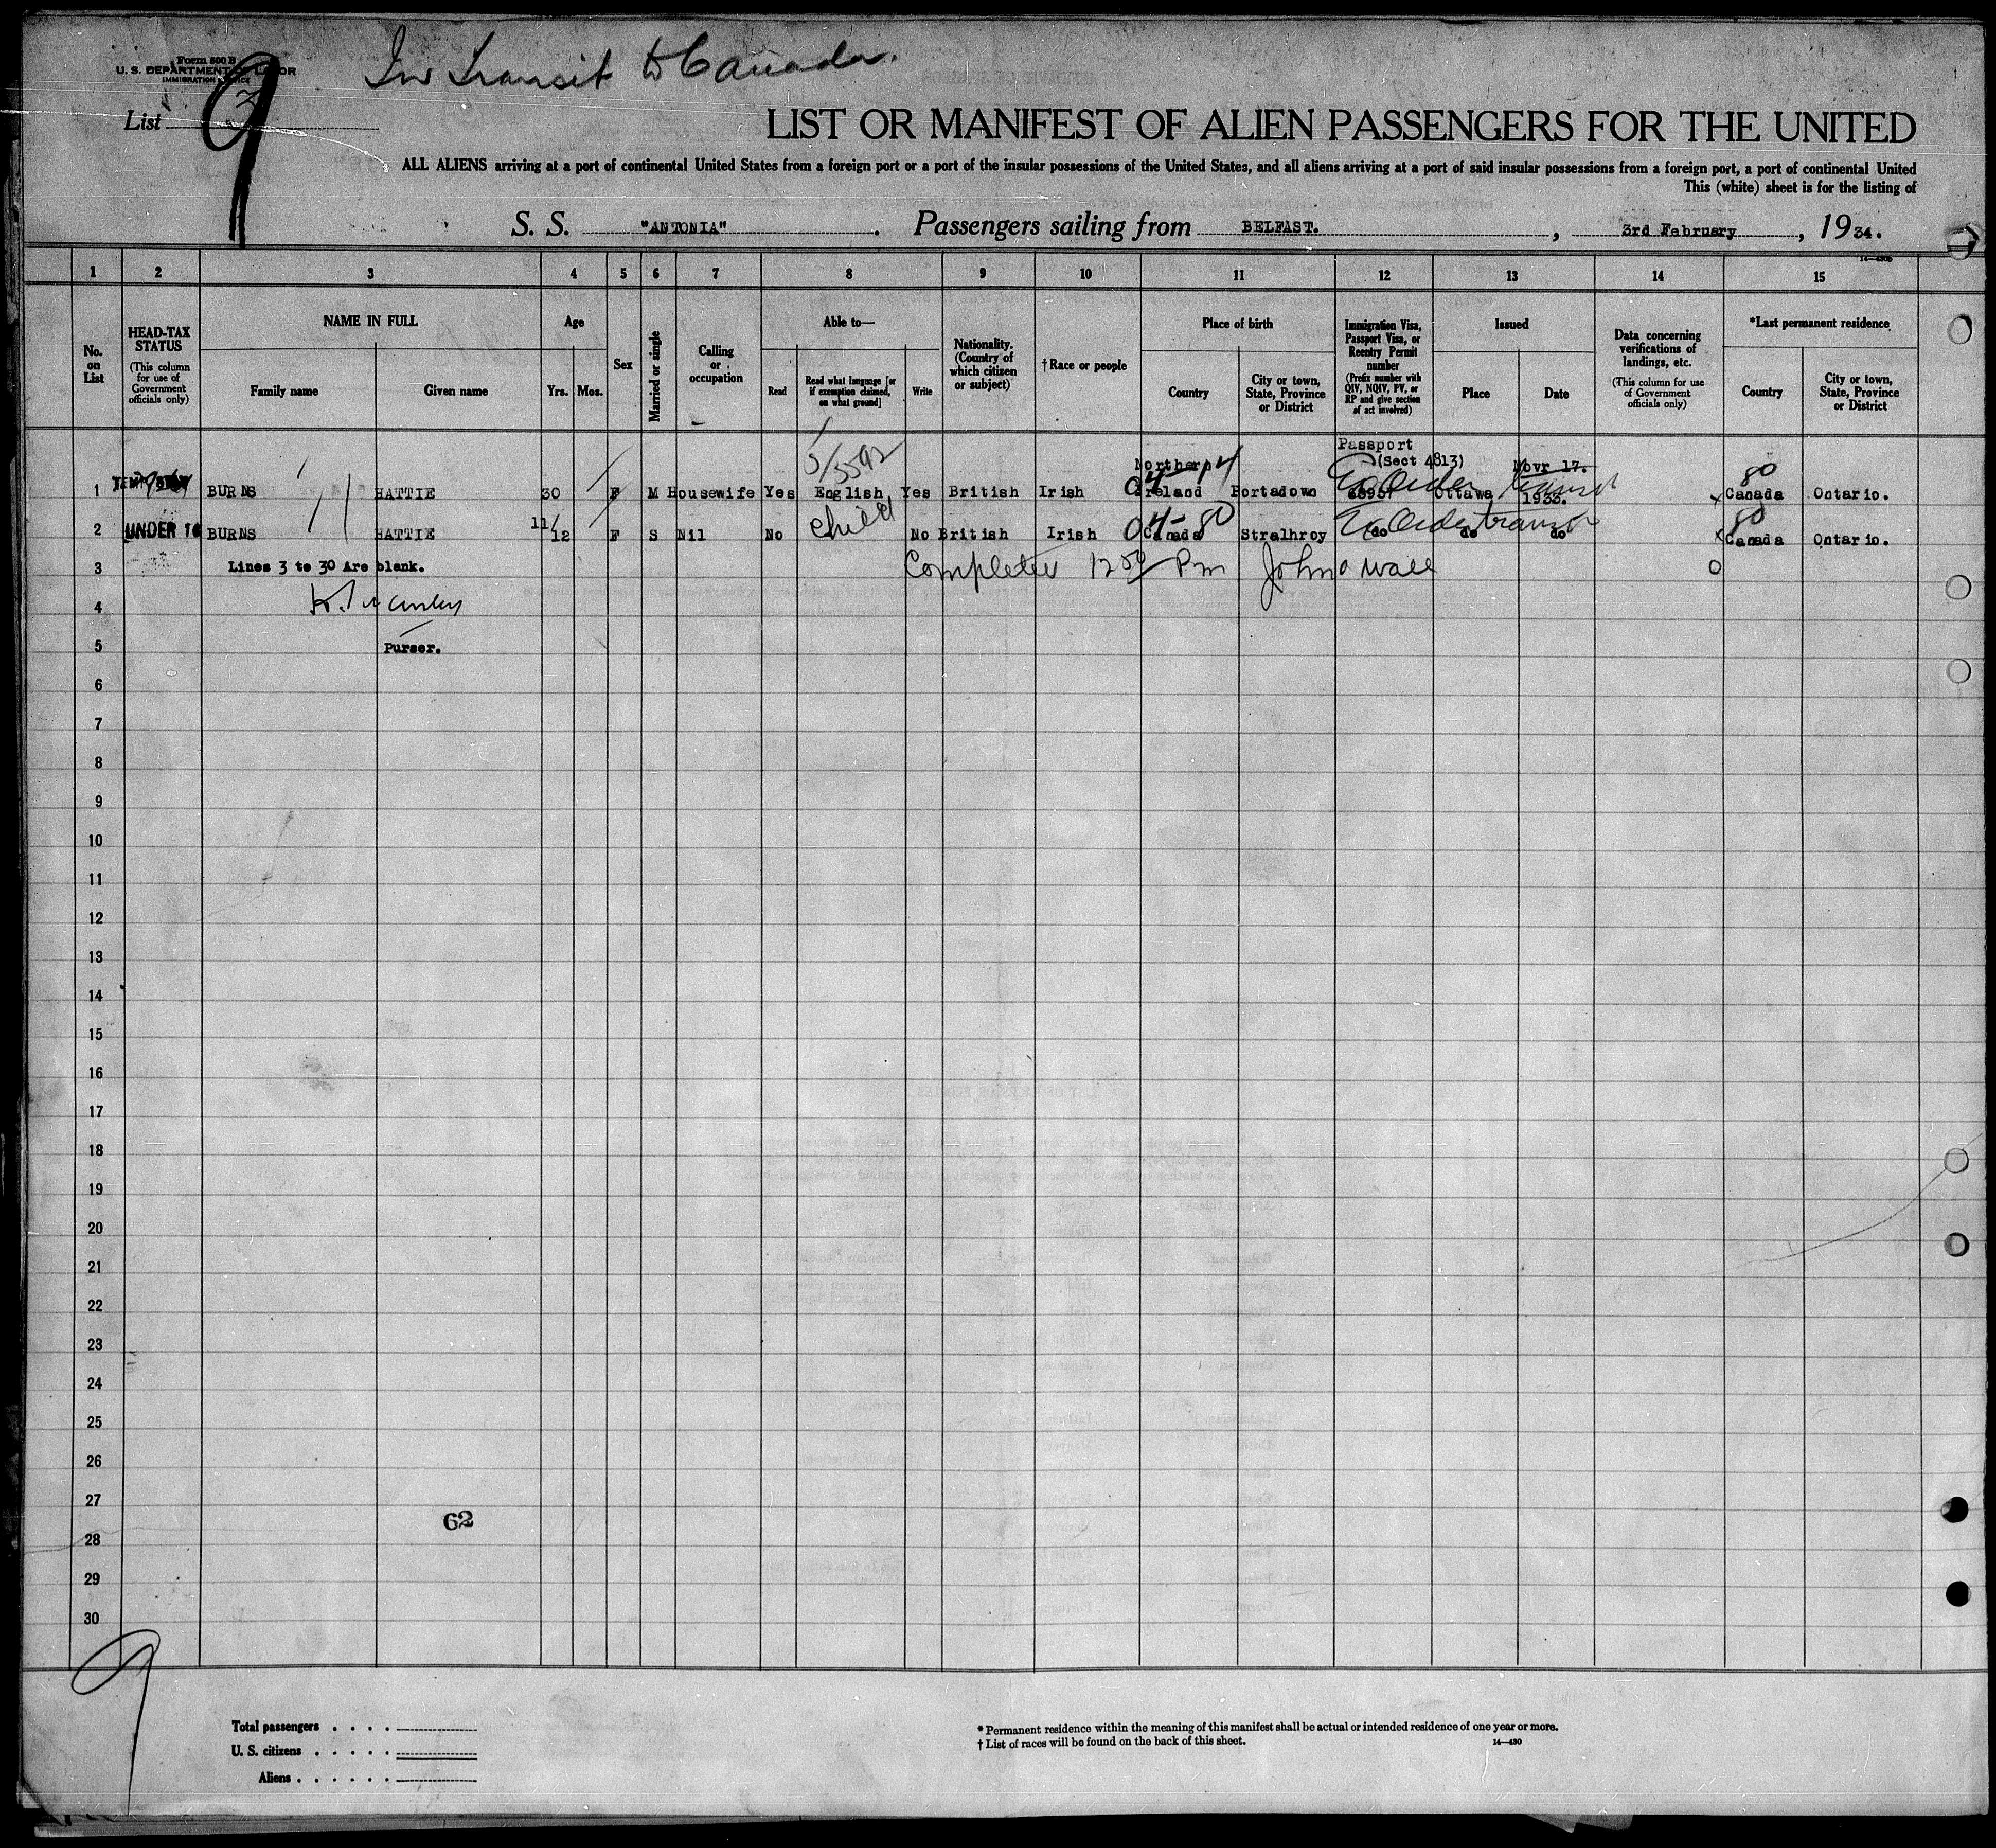 Form 500 B
U. S. DEPARTMENT OF LABOR
IMMIGRATION SERVICE
In transit to Canada.
List 9
3
LIST OR MANIFEST OF ALIEN PASSENGERS FOR THE UNITED
ALL ALIENS arriving at a port of continental United States from a foreign port or a port of the insular possessions of the United States, and all aliens arriving at a port of said insular possessions from a foreign port, a port of continental United
This (white) sheet is for the listing of
S. S. "ANTONIA". Passengers sailing from BELFAST. , 3rd February , 1934.
1 2 3 4 5 6 7 8 9 10 11 12 13 14 15
No. on List
HEAD-TAX STATUS (This column for use of Government officials only)
NAME IN FULL
Family name Given name
Age
Yrs. Mos.
Sex
Married or single
Calling or occupation
Able to—
Read Read what language [or if exemption claimed, on what ground] Write
Nationality. (Country of which citizen or subject)
†Race or people
Place of birth
Country City or town, State, Province or District
Immigration Visa, Passport Visa, or Reentry Permit number (Prefix number with QIV, NQIV, PV, or RP and give section of act involved)
Issued
Place Date
Data concerning verifications of landings, etc. (This column for use of Government officials only)
*Last permanent residence
Country City or town, State, Province or District
Passport
(Sect 4813)
5/3592 Northern Novr 17. 80
1 BURNS HATTIE 30 F M Housewife Yes English Yes British Irish Ireland Portadown Ottawa 1933. Canada Ontario.
2 UNDER 16 BURNS HATTIE 11/12 F S Nil No child No British Irish Canada Stralhroy do do do Canada Ontario.
80
3 Lines 3 to 30 Are blank. Completed 12 50 Pm John Wall
4
5 Purser.
6
7
8
9
10
11
12
13
14
15
16
17
18
19
20
21
22
23
24
25
26
27
62
28
29
30
9
Total passengers . . . .
U. S. citizens . . . . .
Aliens . . . . . .
* Permanent residence within the meaning of this manifest shall be actual or intended residence of one year or more.
† List of races will be found on the back of this sheet.
14—430